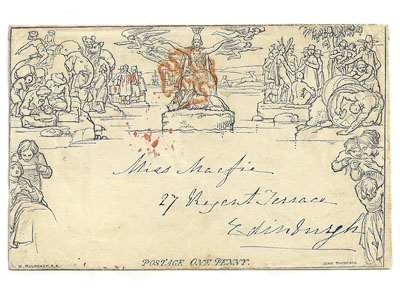 Miss Macfie
27 Regent Terrace
Edinburgh
POSTAGE ONE PENNY.
W. MULREADY, R.A.
JOHN THOMPSON